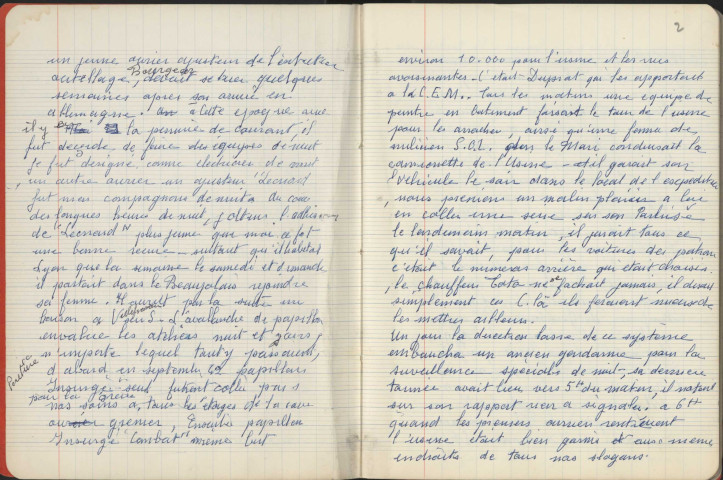 un jeune ouvrier ajusteur de l'entretien
outillage, Bourgeaz devait se tuer quelques
semaines après son arrivée en
allemagne. à cette époque avec
il y eut la pénurie de courant, il
fut décidé de faire des équipes de nuit
je fut désigné comme électricien de nuit
, un autre ouvrier un ajusteur "Léonard"
fut mon compagnon de nuit. Au cours
des longues heures de nuit, j'obtins l'adhésion
de "Léonard" plus jeune que moi ce fut
une bonne recrue - surtout qu'il habitait
Lyon que la semaine le samedi et dimanche
il partait dans le Beaujolais rejoindre
sa femme. Il aurait par la suite un
boison a Villefranche S- d'avalanche de papillon
envahie les ateliers nuit et jours
n'importe lequel tout y passaient,
d'abord en septembre 60 papillons
Insurgé seul furent collé par
Peinture
pour la guerre
nos soins a, tous les étages de la cave
au grenier, Ensuite papillon
Insurgé "Combat" même but
2
environ 10.000 pour l'usine et les rues
avoisinantes - C'était Duprat qui les apportait
a la C.E.M. Tous les matins une équipe de
peintre en batiment faisait le tour de l'usine
pour les arracher, ainsi qu'une femme de
milicien S.O.L. dont le Mari conduisait la
camionette de l'Usine - et il garait son
véhicule le soir dans le local de l'expédition
, nous prenions un malin plaisir a lui
en coller une série sur son Parebrise
le lendemain matin, il jurait tous ce
qu'il savait, pour les voitures des patrons
c'était le numéros arrière qui était choisis.
, le chauffeur Toto ne se fachait jamais, il disait
simplement ces C. là ils feraient mieux de
les mettres ailleurs.
Un jour la direction lasse de ce système
embaucha un ancien gendarme pour la
surveillance spéciale de nuit, sa dernière
tournée avait lieu vers 5h du matin, il notait
sur son rapport rien a signaler. a 6h
quand les premiers ouvriers rentraient
l'usine était bien garnis et aux même
endroits de tous nos slogans.